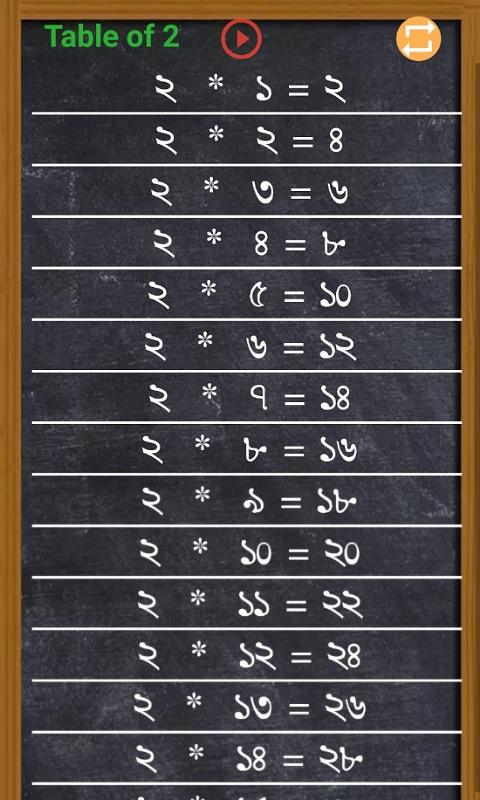 Table of 2
২ * ১ = ২
২ * ২ = ৪
২ * ৩ = ৬
২ * ৪ = ৮
২ * ৫ = ১০
২ * ৬ = ১২
২ * ৭ = ১৪
২ * ৮ = ১৬
২ * ৯ = ১৮
২ * ১০ = ২০
২ * ১১ = ২২
২ * ১২ = ২৪
২ * ১৩ = ২৬
২ * ১৪ = ২৮